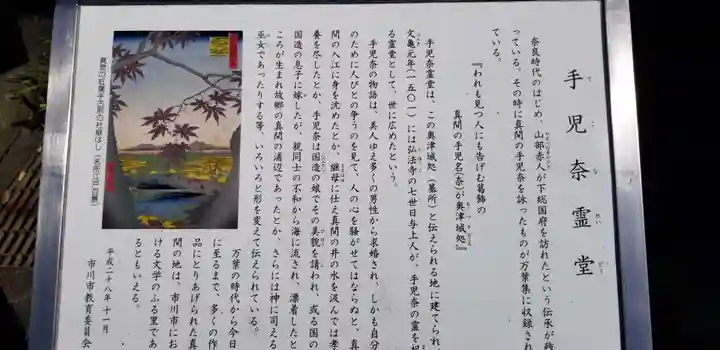 手児奈霊堂
奈良時代のはじめ、山部赤人が下総国府を訪れたという伝承が
っている。その時に真間の手児奈を詠ったものが万葉集に収録され
ている。
『われも見つ人にも告げむ葛飾の
真間の手児名(奈)が奥津城処』
手児奈霊堂は、この奥津城処(墓所)と伝えられる地に建てられ、
文亀元年(一五〇一)には弘法寺の七世日与上人が、手児奈の霊を祀
る霊堂として、世に広めたという。
手児奈の物語は、美人ゆえ多くの男性から求婚され、しかも自分
のために人びとの争うのを見て、人の心を騒がせてはならぬと、真
間の入江に身を沈めたとか、継母に仕え真間の井の水を汲んでは孝
養を尽したとか、手児奈は国造の娘でその美貌を請われ、或る国の
国造の息子に嫁したが、親同士の不和から海に流され、漂着したと
ころが生まれ故郷の真間の浦辺であったとか、さらには神に司える
巫女であったりする等、いろいろと形を変えて伝えられている。
万葉の時代から今日
に至るまで、多くの作
品にとりあげられた真
間の地は、市川市にお
ける文学のふる里であ
るともいえる。
平成二十八年十一月
市川市教育委員会
真間の紅葉手古那の社継はし(名所江戸百景)